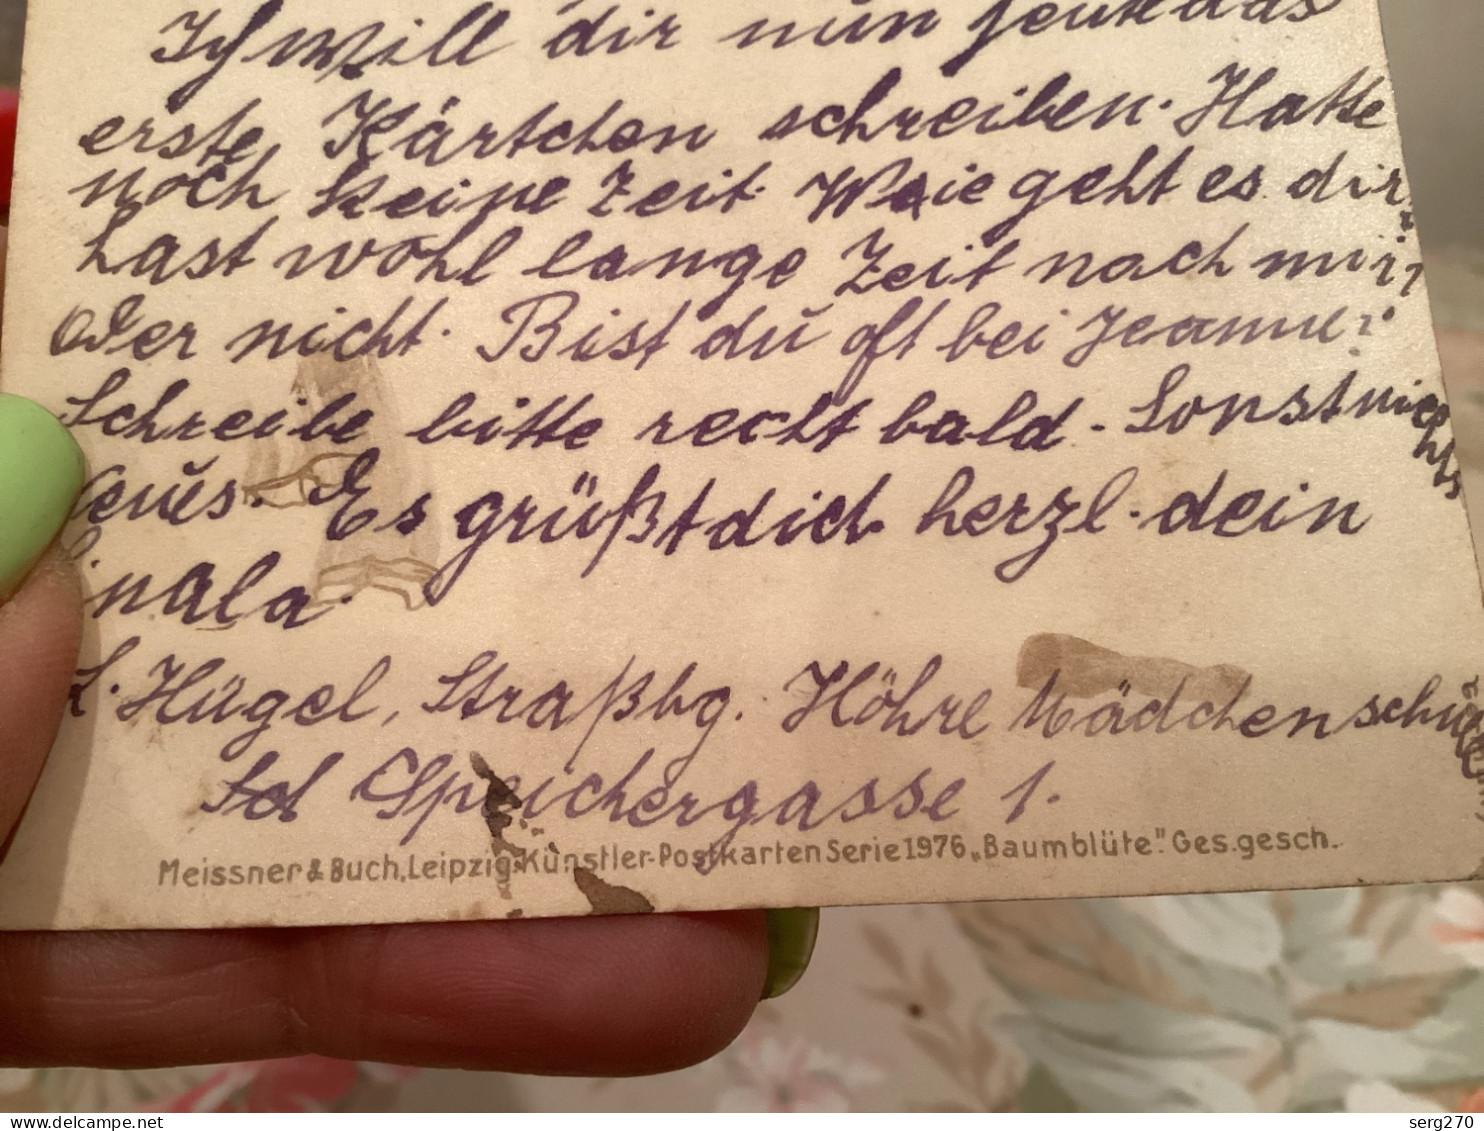 Ich will dir nun heute das
erste Kärtchen schreiben. Hatte
noch keine Zeit. Wie geht es dir,
hast wohl lange Zeit nach mir,
oder nicht. Bist du oft bei Jeanne?
Schreibe bitte recht bald. Sonst nichts
neues. Es grüßt dich herzl. dein
L. Hügel, Straßbg. Höhre Mädchenschule
Speichergasse 1.
Meissner & Buch, Leipzig. Künstler-Postkarten Serie 1976, „Baumblüte". Ges. gesch.
serg270